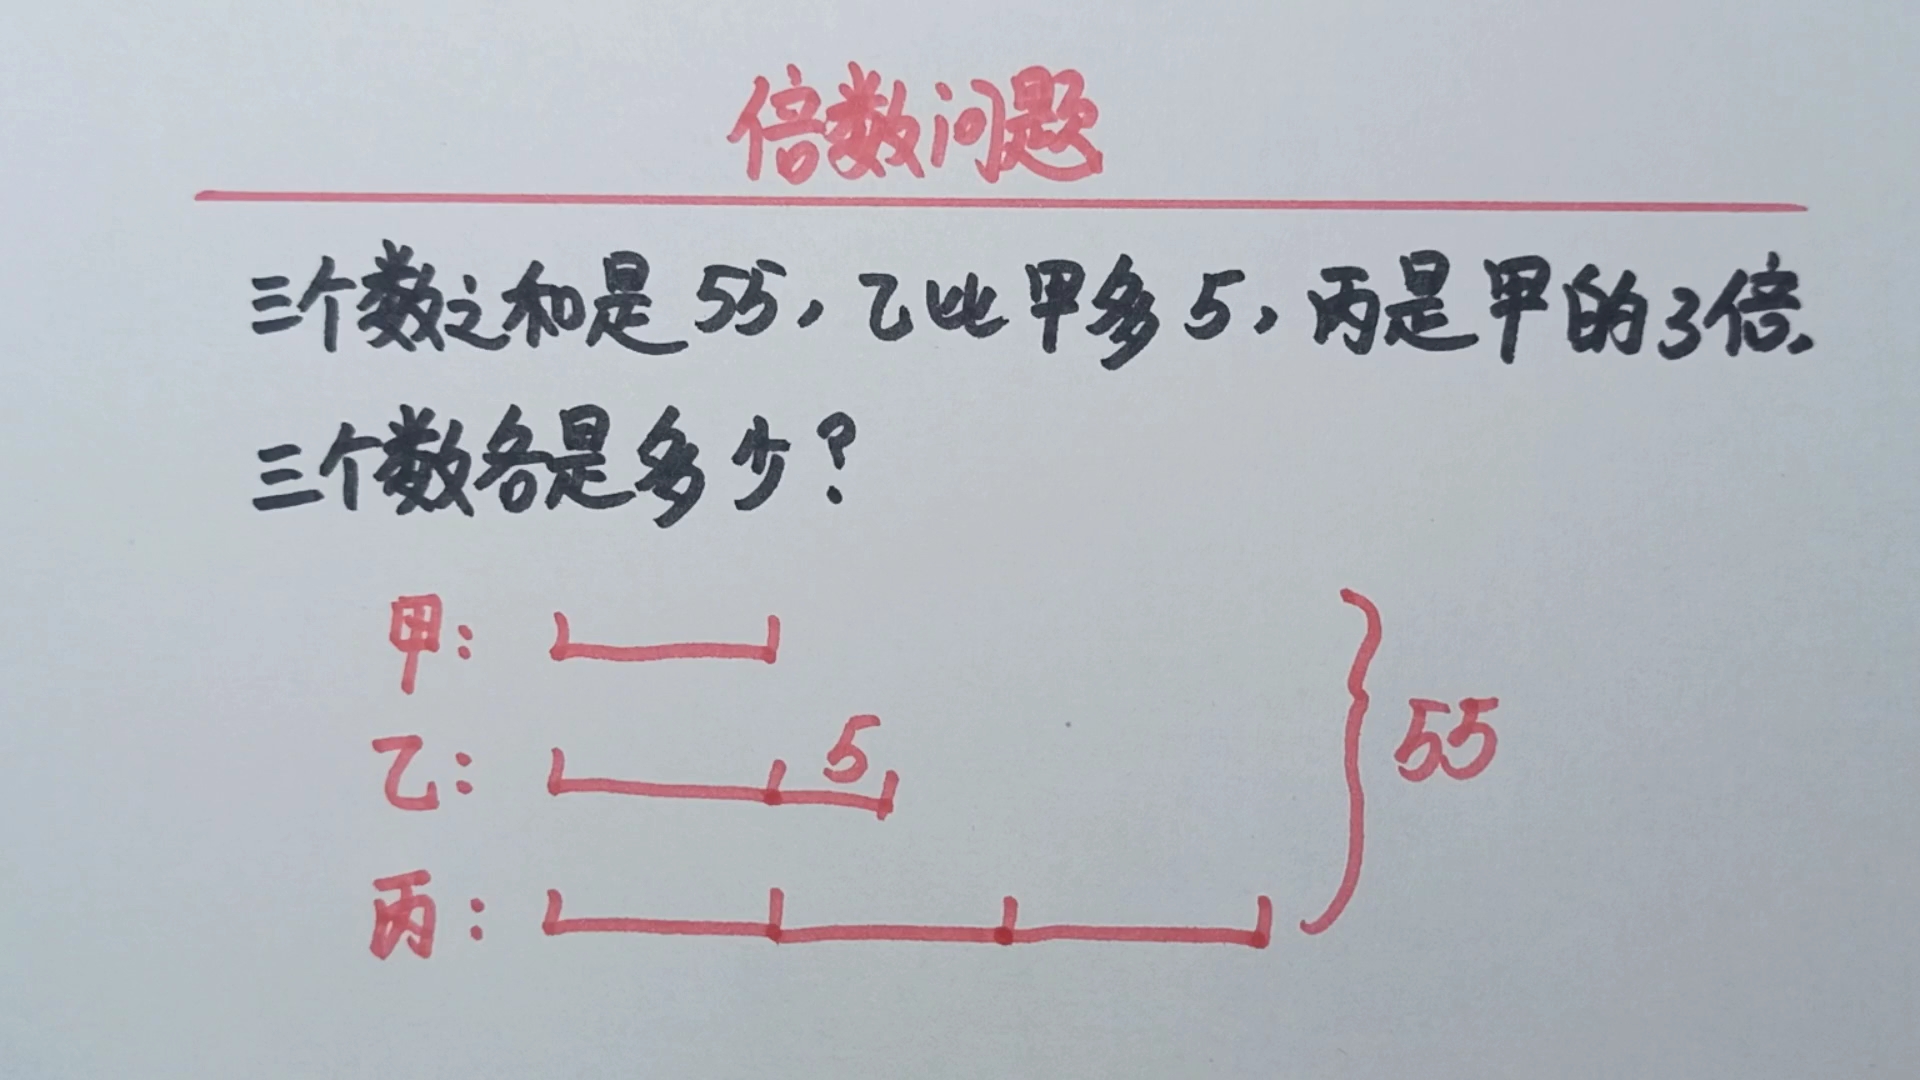 倍数问题
三个数之和是55，乙比甲多5，丙是甲的3倍.
三个数各是多少？
甲：
乙： 5
丙：
55